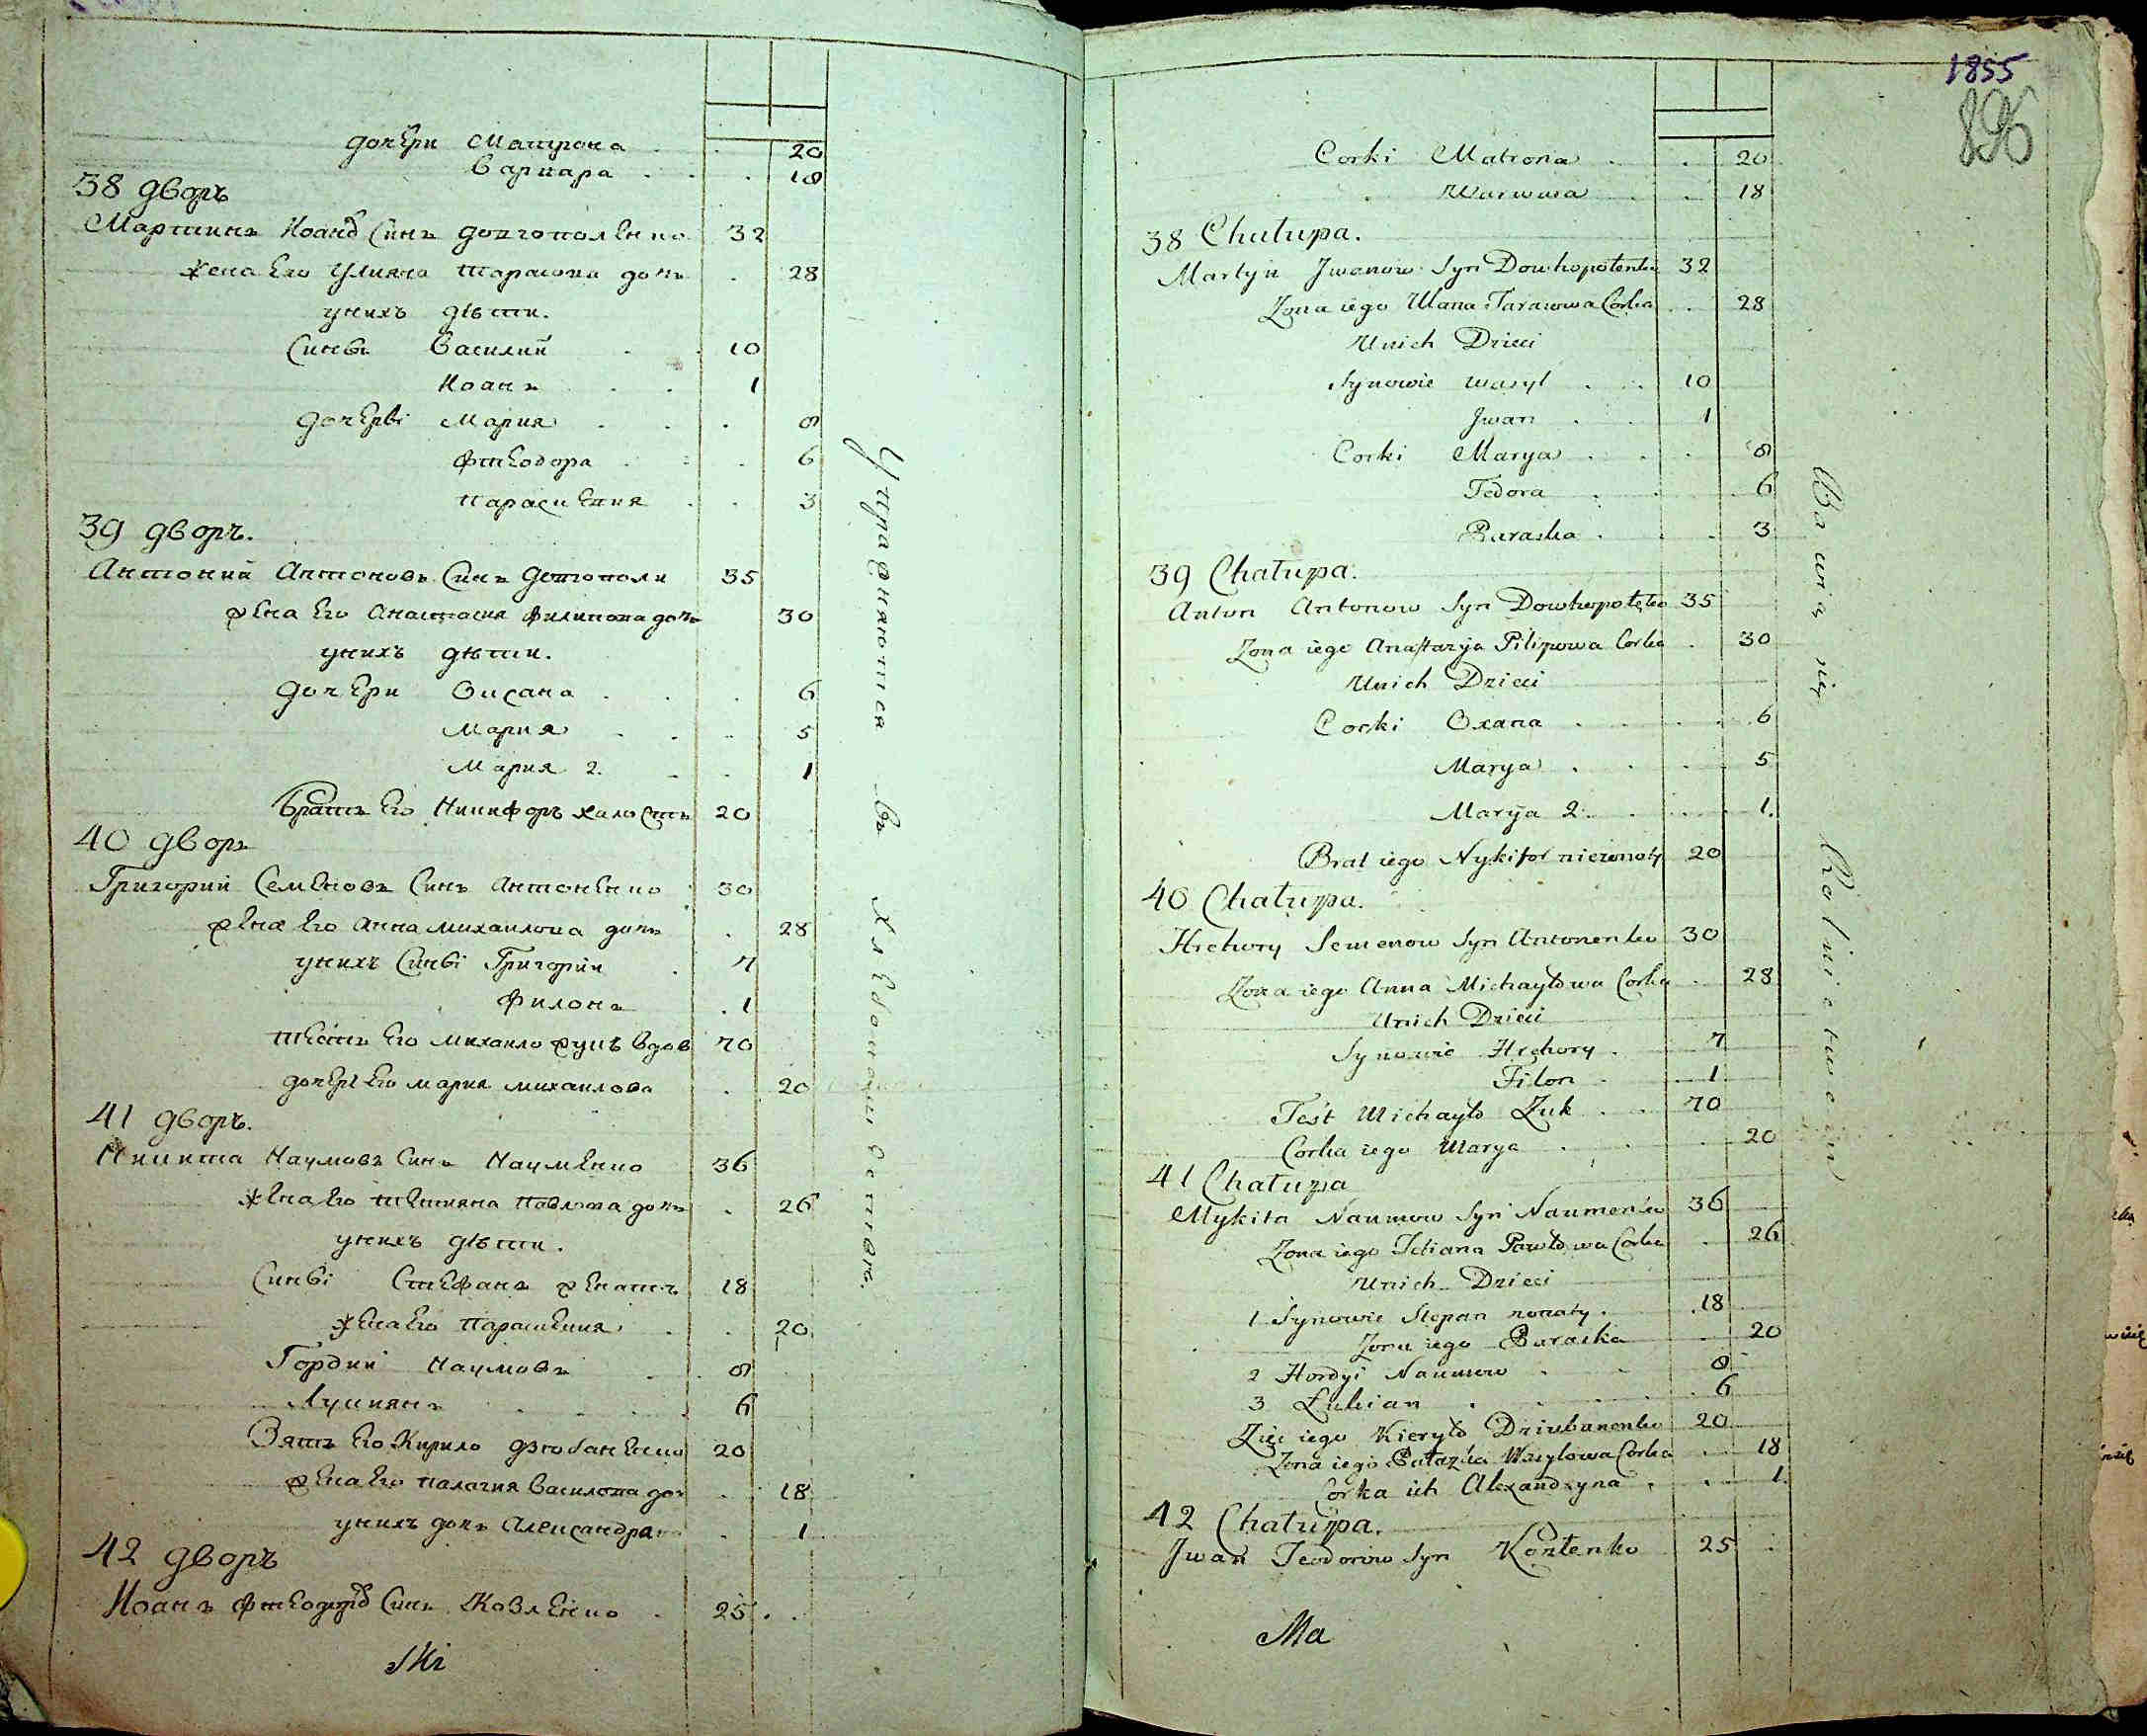 дочери Матрона . . 20
Варвара . . 18
38 дворъ
Мартинъ Иоановъ Синъ Довгополенко 32
жена Его Улияна Тарасова дочь . 28
унихъ дѣти.
Синѣ Василий . 10
Иоанъ . . 1
дочерѣ Мария . . . 8
Фтеодора . . . 6
Параскевия . . 3
39 дворъ.
Антоний Антоновъ Синъ Довгополи 35
жена Его Анастасия Филипова дочь 30
унихъ дѣти.
дочери Оксана . . . 6
Мария . . . 5
Мария 2. . . 1
Братъ Его Никифоръ холостъ 20
40 дворъ
Григорий Семеновъ Синъ Антоненко 30
жена Его Анна Михаилова дочь . 28
унихъ Синві Григорий . 7
Филонъ . 1
тесть Его Михаило Жукъ вдов 70
дочерь Его Мария Михаилова . 20
41 дворъ.
Никита Наумовъ Синъ Науменко 36
жена Его Тетияна Павлова дочь . 26
унихъ дѣти.
Синві Стефанъ женатъ 18
жена Его Параскевия . . 20
Гордий Наумовъ . . 8
Лукиянъ . . . 6
Зять Его Кирило Дзюбаненко 20
жена Его Палагия Василова доч . 18
унихъ дочь Александра . 1
42 дворъ
Иоанъ Фтеодоровъ Синъ Козленко . 25 . .
Упражняются въ Хлебопашестве.
1855
896
Corki Matrona . . 20
Warwara . . 18
38 Chałupa.
Martyn Jwanow Syn Dowhopolenko 32
Zona iego Ulana Tarasowa Corka . . 28
Unich Dzieci
Synowie Wasyl . . 10
Jwan . . 1
Corki Marya . . . 8
Fedora . . . 6
Paraska . . . 3
39 Chałupa.
Anton Antonow Syn Dowhopolęko 35
Zona iego Anastazya Pilipowa Corka . 30
Unich Dzieci
Corki Oxana . . . 6
Marya . . . 5
Marya 2. . . 1.
Brat iego Nykifor niezonaty 20
40 Chałupa.
Hrehory Semenow Syn Antonenko 30
Zona iego Anna Michayłowa Corka . 28
Unich Dzieci
Synowie Hrehory . 7
Filon . 1
Teśt Michayło Zuk . . 70
Corka iego Marya . . 20
41 Chałupa
Mykita Naumow Syn Naumenko 36
Zona iego Tetiana Pawłowa Corka . 26
Unich Dzieci
1 Synowie Stepan zonaty . 18
Zona iego Paraska . 20
2 Hordyi Naumow . . 8
3 Łukian . . . 6
Zięc iego Kieryło Dziubanenko 20
Zona iego Pałazka Wasylowa Corka . 18
Corka ich Alexandryna . . 1
42 Chałupa.
Jwan Teodorow Syn Kozlenko 25 .
Bawią się Rolnictwem
Ma